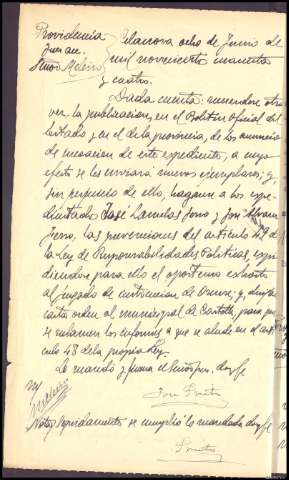 Providencia
Juez
Señor
Vilanova ocho de Junio de
mil novecientos cuarenta
y cuatro.
Dada cuenta: reenvíese otra
vez la publicación, en el Boletín oficial del
Estado y en el de la provincia, de los anuncios
de incoacion de este expediente, a cuyo
efecto se les enviará nuevos ejemplares; y,
sin perjuicio de ello, háganse a los expe-
dientados José
las prevenciones del artículo 49 de
la Ley de Responsabilidades Politicas, expi-
diendose para ello el oportuno exhorto
al juzgado de instruccion de Orense; y, dirijase
carta orden al municipal de Cartelle, para que
se reclamen los informes a que se alude en el arti-
culo 48 de la propia Ley.
Lo mandó y firma el Señor Juez, doy fe
Nota: Seguidamente se cumplió lo mandado doy fe